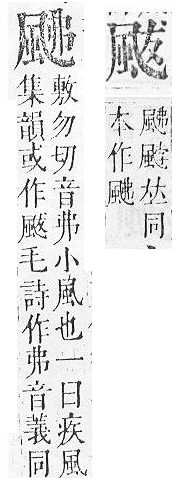 敷勿切音弗小風也一曰疾風
集韻或作颰毛詩作弗音義同
颰
𠀤同
本作